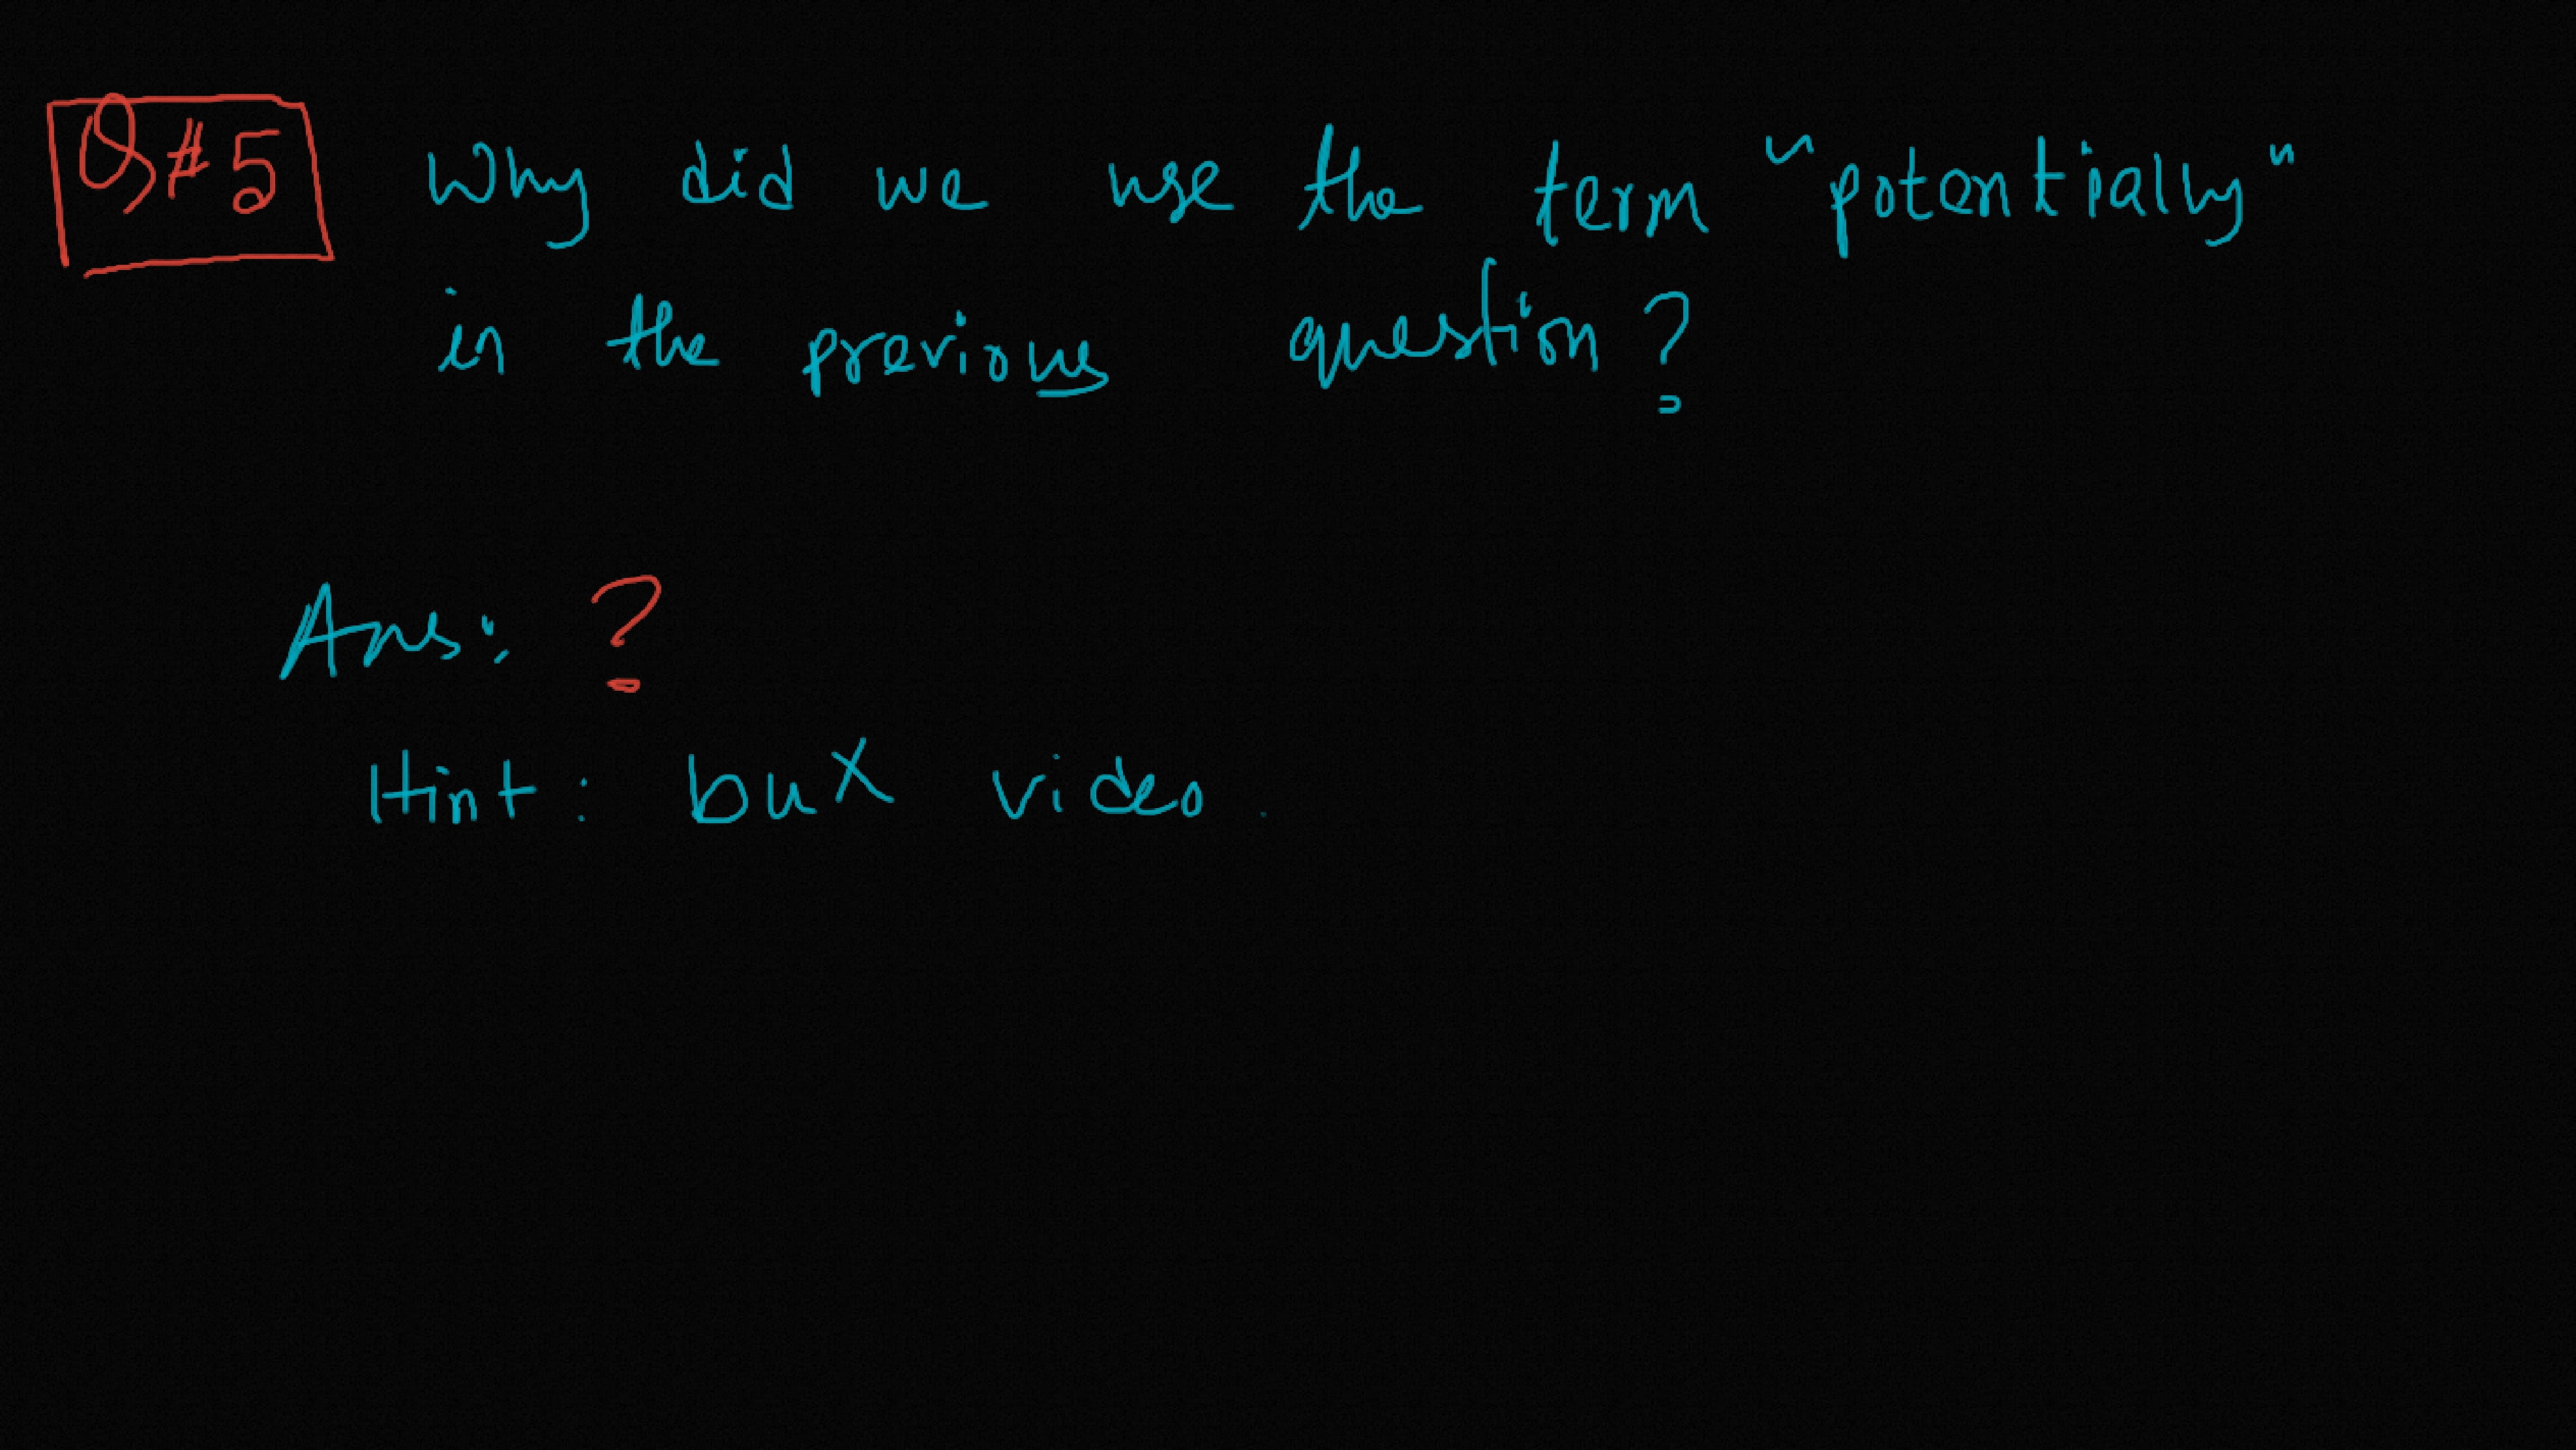 Q#5 Why did we use the term "potentially"
in the previous question?
Ans: ?
Hint: buX video.